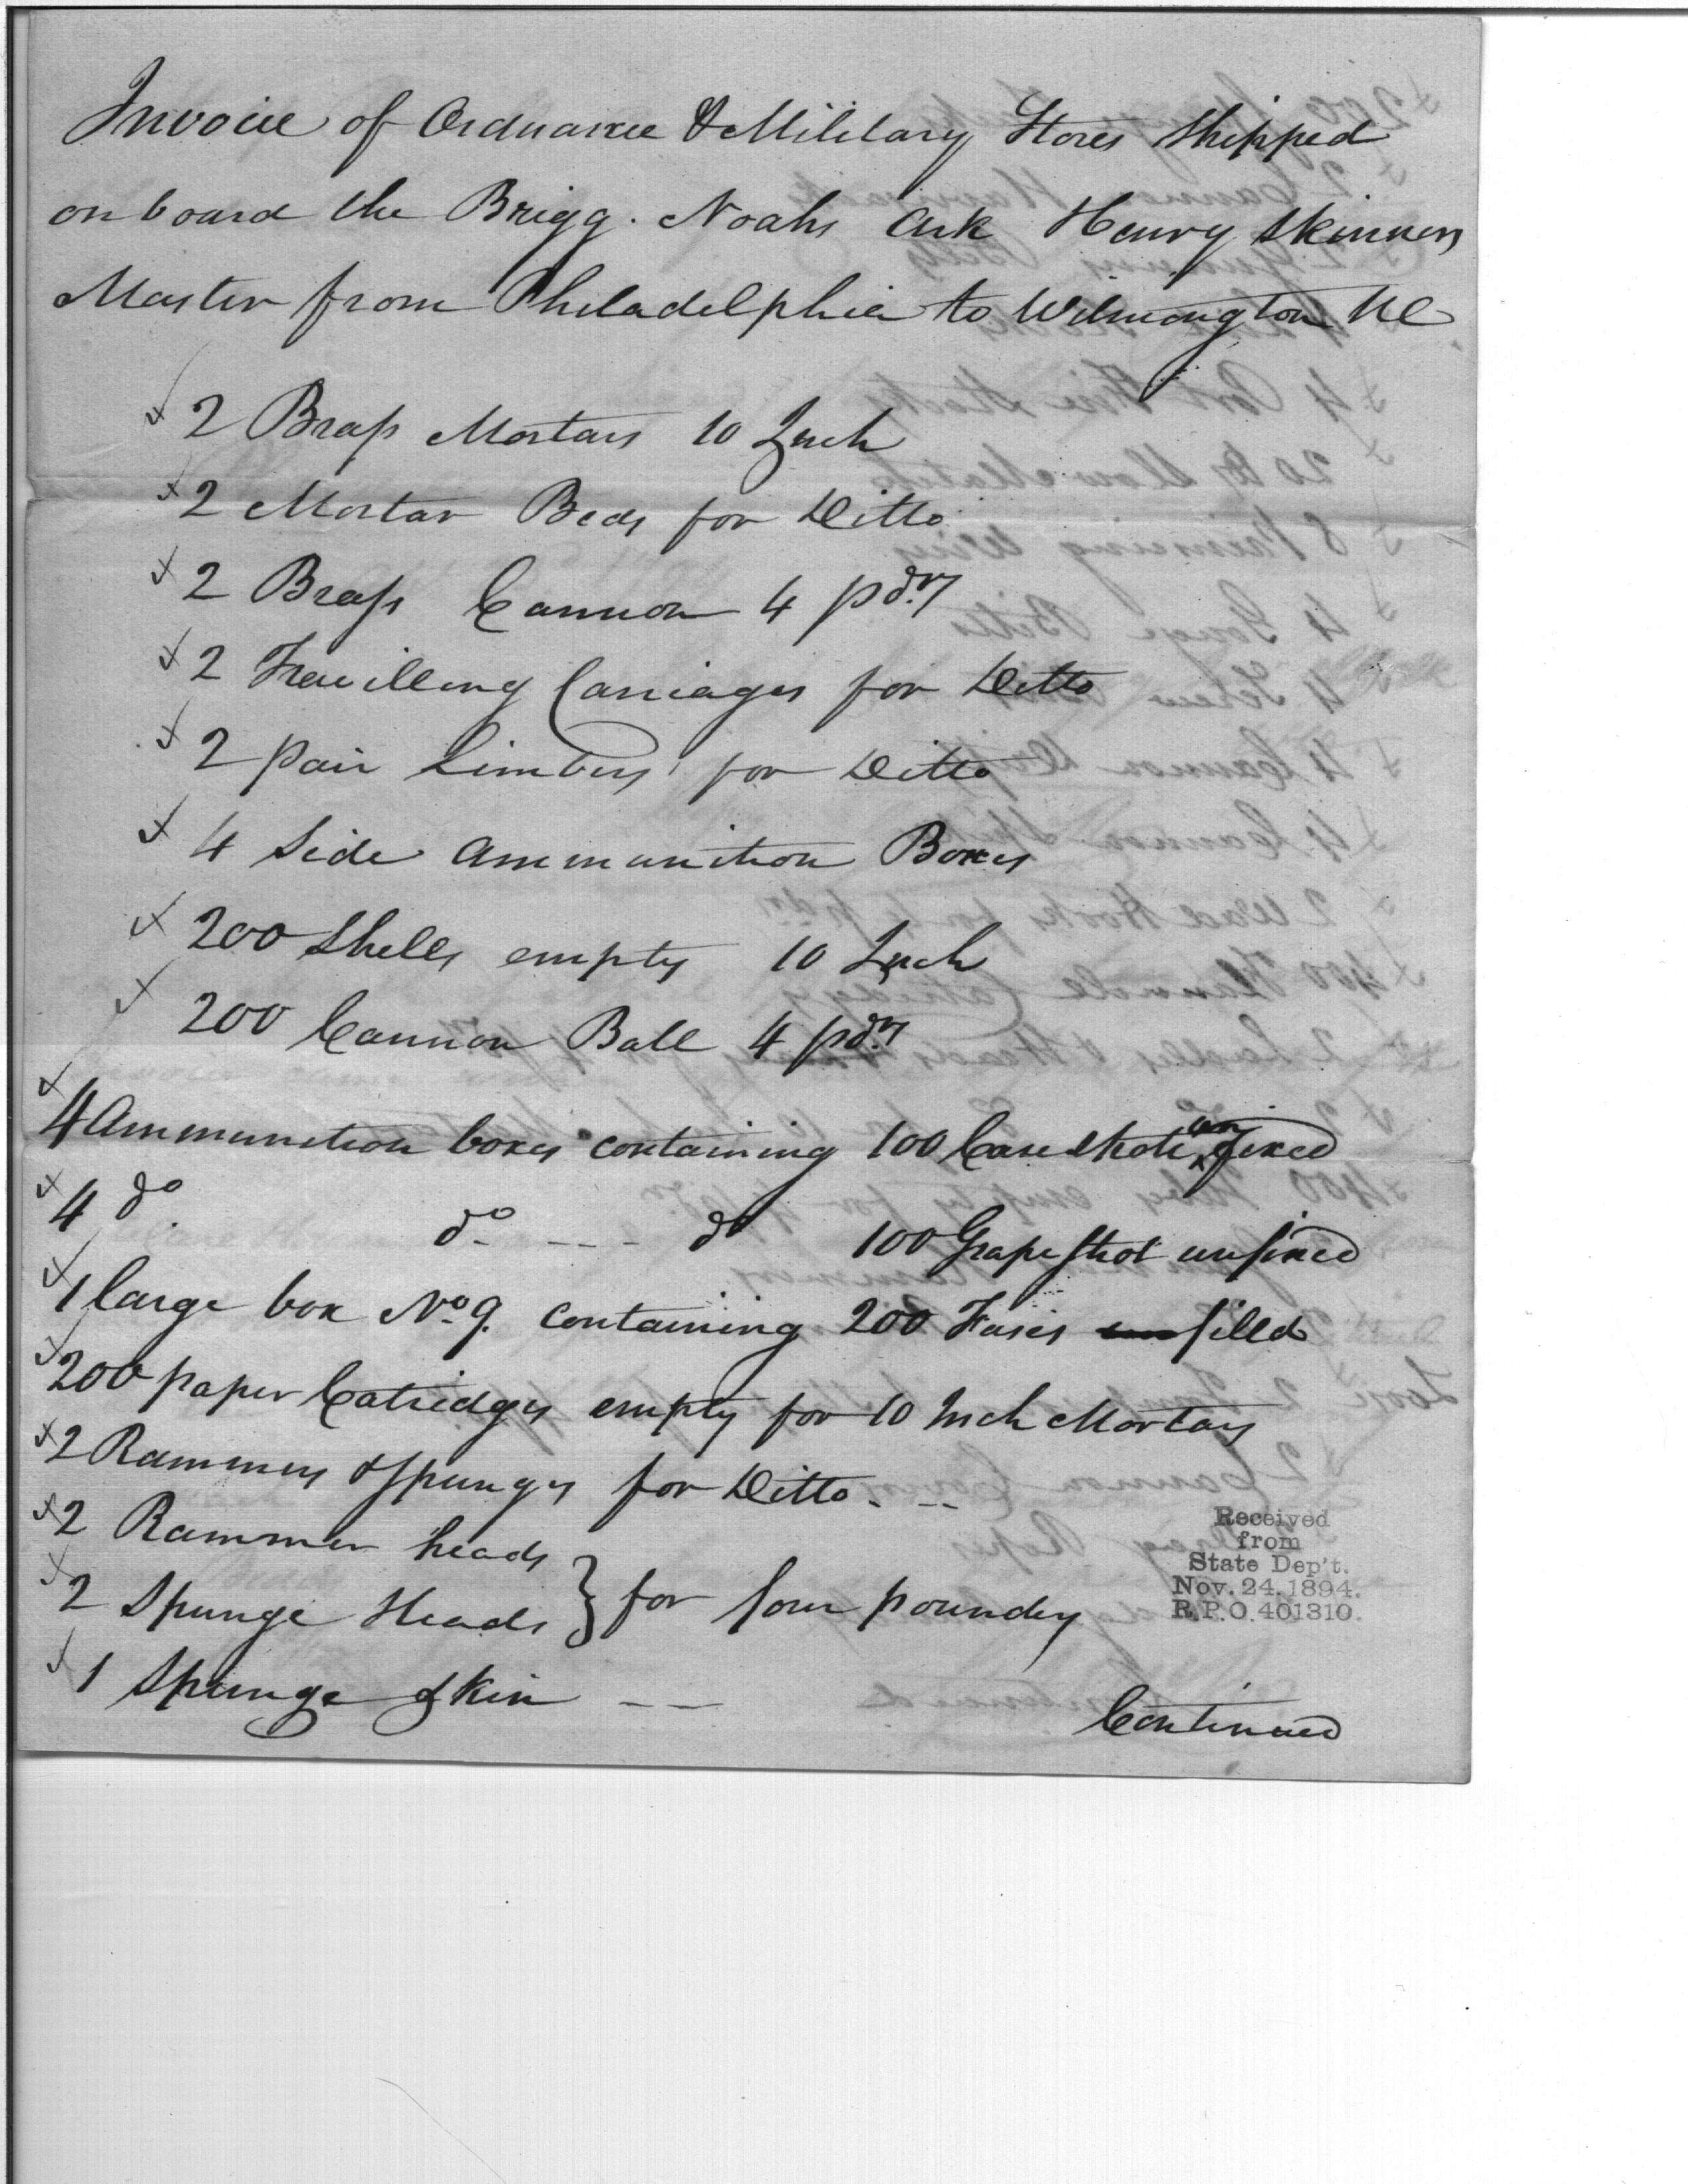 Invoice of Ordnance & Military Stores Shipped
on board the Brigg. Noahs Ark Henry Skinner
Master from Philadelphia to Wilmington
2 Brass Mortars 10 Inch
2 Mortar Beds for Ditto
2 Brass Cannon 4 pdrs
2 Travilling Carriages for Ditto
2 pair Limbers for Ditto
4 Side Ammunition Boxes
200 Shells empty 10 Inch
200 Cannon Ball 4 pdr
4 Ammunition boxes containing 100 Case Shot unfixed
4 do do - - - do 100 Grape Shot unfixed
1 large box No 9. Containing 200 Fuses filled
200 paper Catridges empty for 10 Inch Mortars
2 Rammers & Spunges for Ditto. --
2 Rammer heads
2 Spunge Heads } for four pounders
1 Spunge Skin --
Received
from
State Dep't.
Nov. 24. 1894.
R.P.O. 401310.
Continued